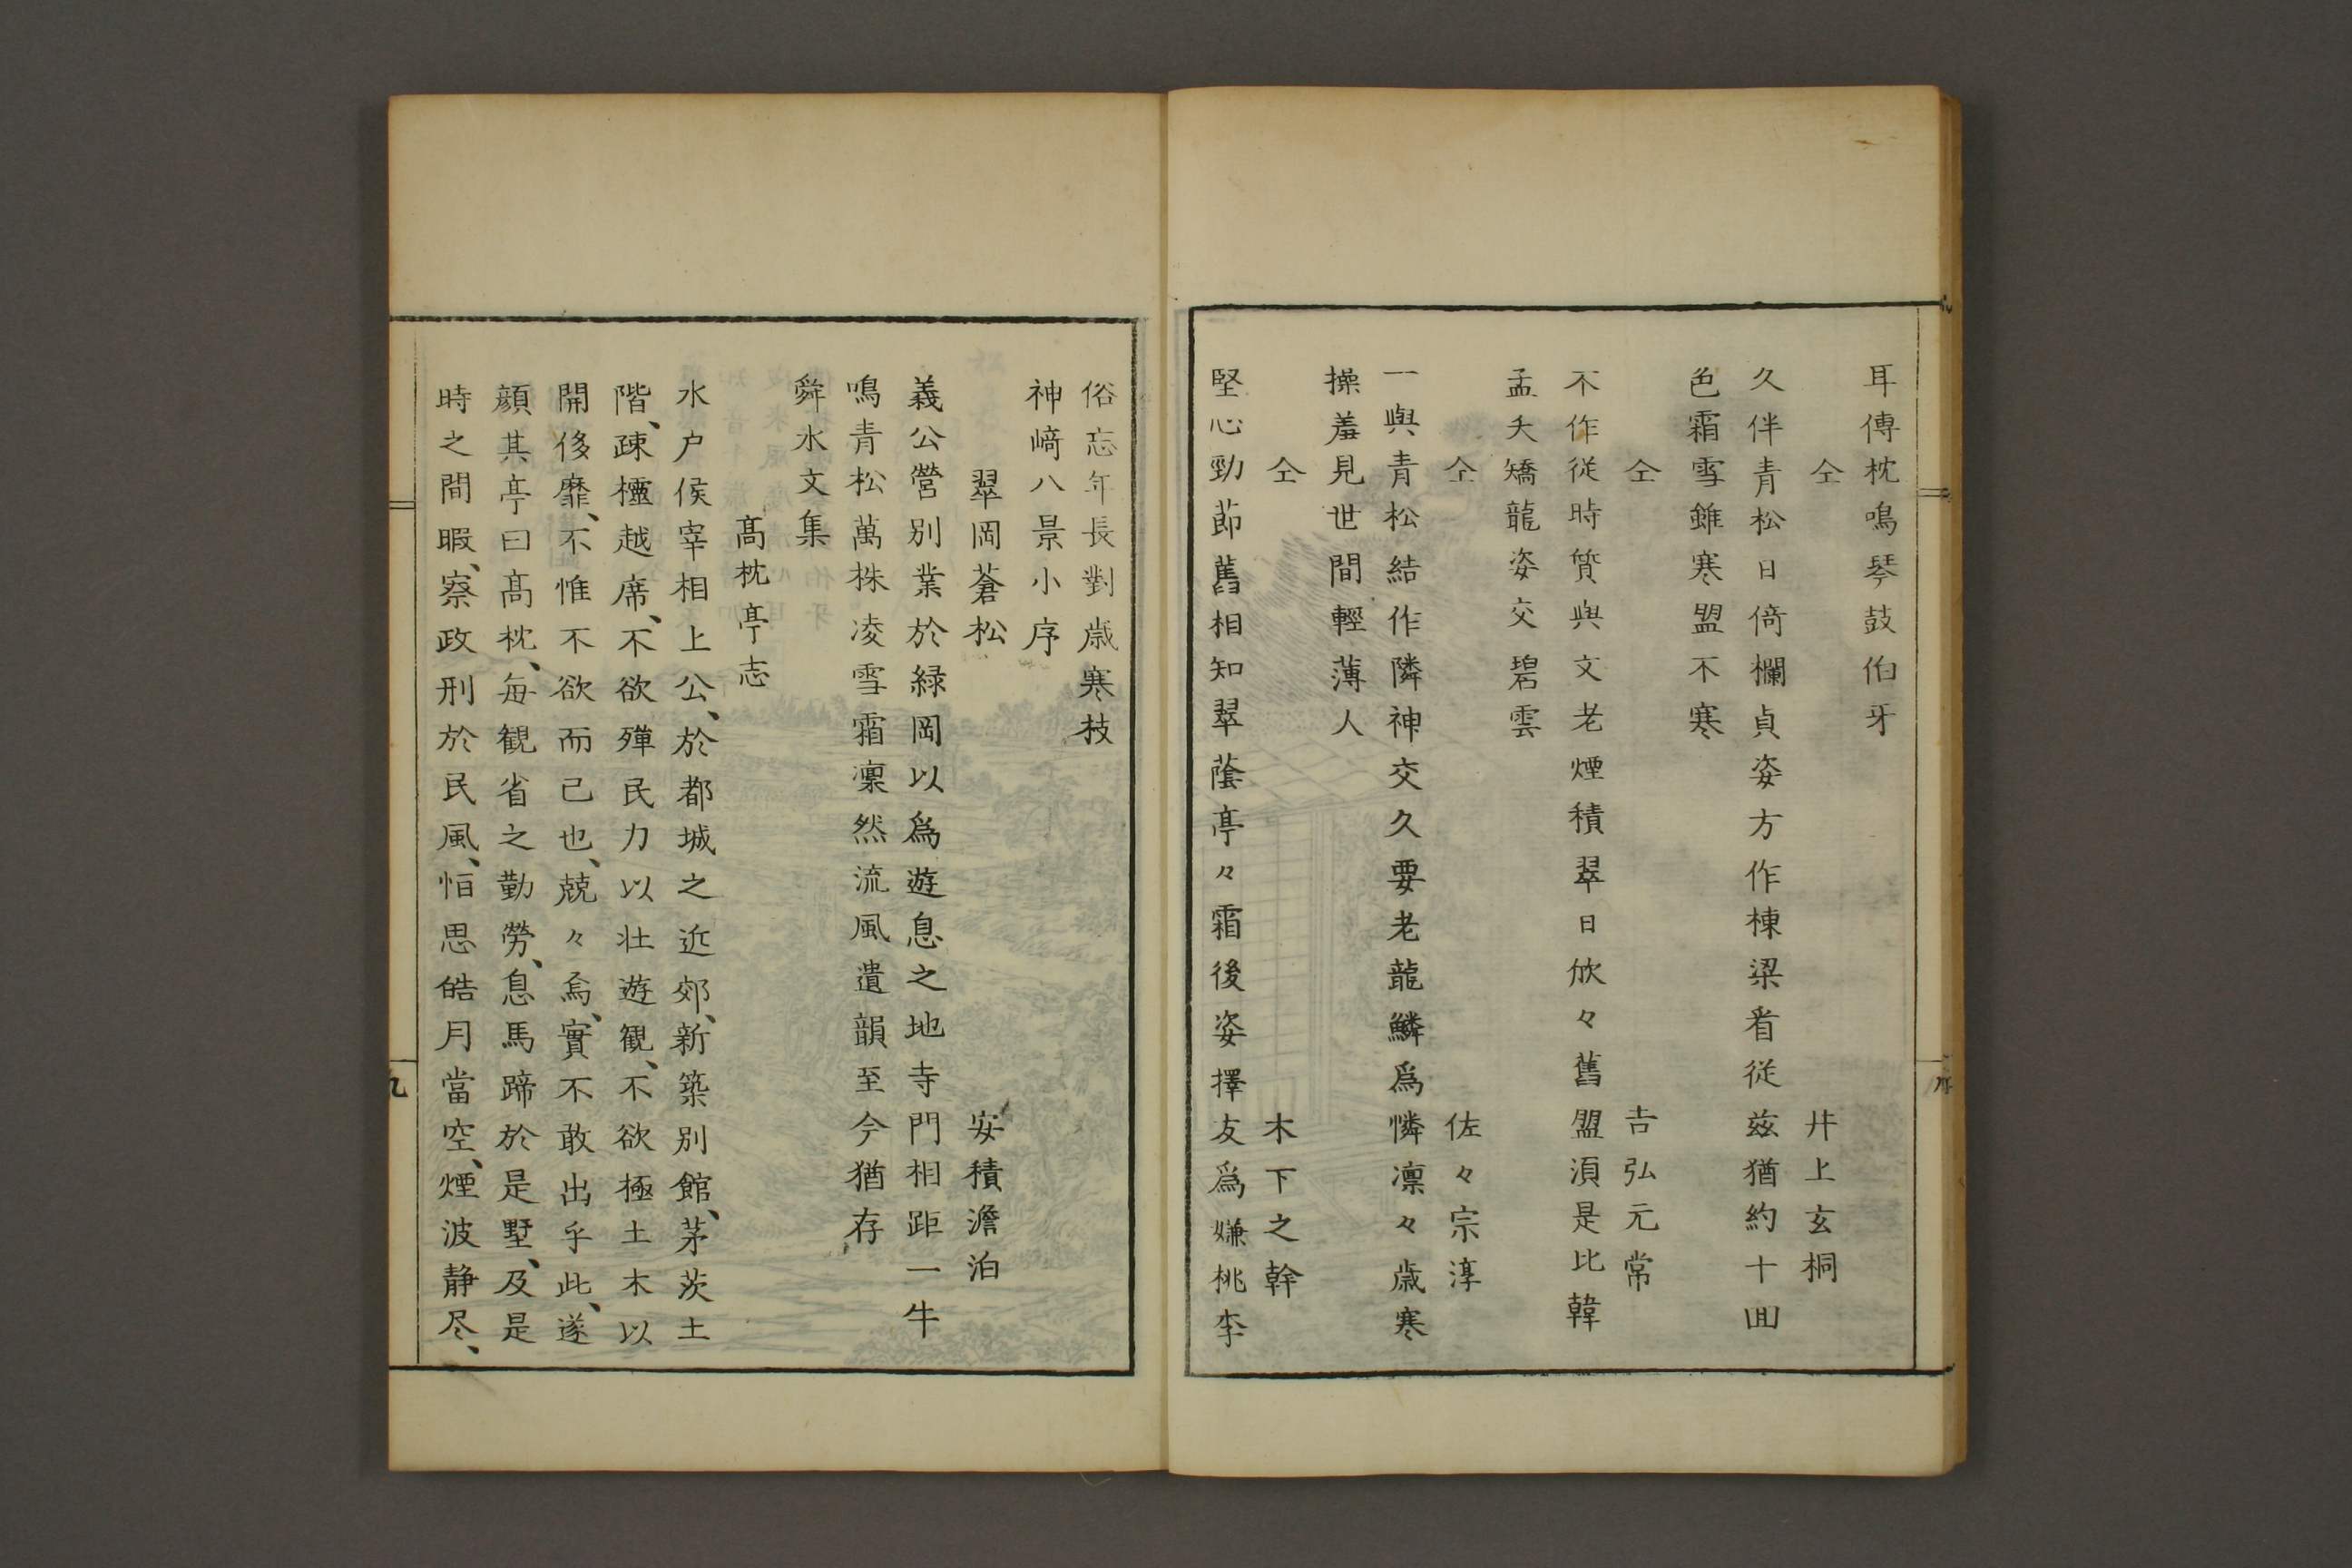 耳傳枕鳴琴鼓伯牙
仝　井上玄桐
久伴青松日倚欄貞姿方作棟梁看從茲猶約十囬
色霜雪錐寒盟不寒
仝　吉弘元常
不作從時質與文老煙積翠日欣々舊盟須是比韓
孟夭矯龍姿交碧雲
仝　佐々宗淳
一與青松結作隣神交久要老龍鱗爲憐凛々歳寒
操羞見世間輕薄人
仝　木下之幹
堅心勁節舊相知翠蔭亭々霜後姿擇友爲嫌桃李
俗忘年長對歳寒枝
神﨑八景小序
翠岡蒼松　安積澹泊
義公營別業於緑岡以爲遊息之地寺門相距一牛
鳴青松萬株凌雪霜凜然流風遺韻至今猶存
舜水文集
髙枕亭志
水户侯宰相上公、於都城之近郊、新築別館、茅茨土
階、疎櫺越席、不欲殫民力以壮遊観、不欲極土木以
開侈靡、不惟不欲而已也、兢々焉、實不敢出乎此、遂
顔其亭曰髙枕、毎観省之勤勞、息馬蹄於是墅、及是
時之間暇、察政刑於民風、怕思皓月當空、煙波静尽、
九